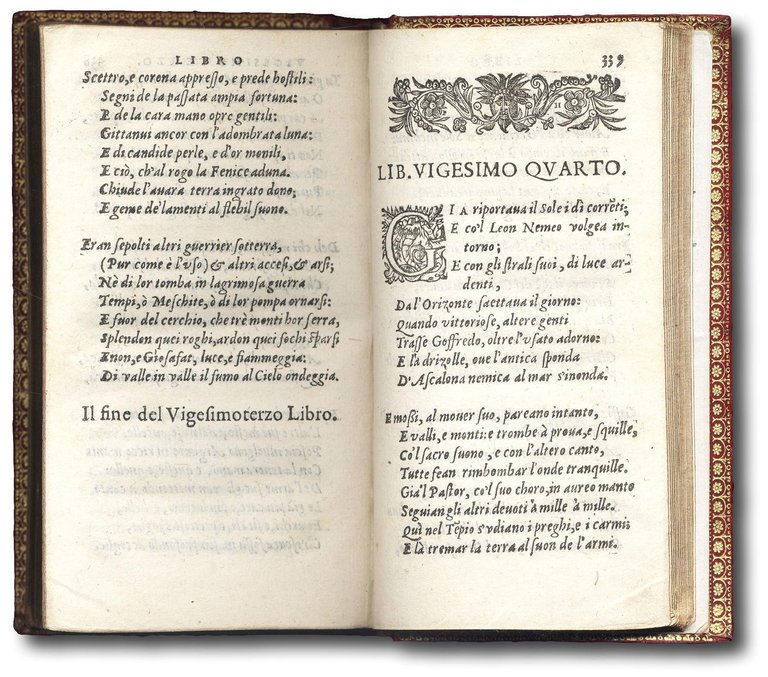 LIBRO
Scettro, e corona appresso, e prede hostili:
Segni de la passata ampia fortuna:
E de la cara mano opre gentili:
Gittanui ancor con l'adombrata luna:
E di candide perle, e d'or monili,
E ciò, ch'al rogo la Fenice aduna.
Chiude l'auara terra ingrato dono;
E geme de' lamenti al flebil suono.
Eran sepolti altri guerrier sotterra,
(Pur come è l'vso) & altri accesi, & arsi;
Nè di lor tomba in lagrimosa guerra
Tempi, ò Meschite, ò di lor pompa ornarsi:
E fuor del cerchio, che trè monti hor serra,
Splendon quei roghi, ardon quei fochi sparsi
Enon, e Giosafat, luce, e fiammeggia:
Di valle in valle il fumo al Cielo ondeggia.
Il fine del Vigesimoterzo Libro.
339
LIB. VIGESIMO QVARTO.
GIA riportaua il Sole i dì corrēti;
E co'l Leon Nemeo volgea in-
torno;
E con gli strali suoi, di luce ar-
denti,
Da l'Orizonte saettaua il giorno:
Quando vittoriose, altere genti
Trasse Goffredo, oltre l'vsato adorno:
E là drizolle, oue l'antica sponda
D'Ascalona nemica al mar s'inonda.
Emossi, al mouer suo, pareano intanto,
E valli, e monti: e trombe à proua, e squille,
Co'l sacro suono, e con l'altero canto,
Tutte fean rimbombar l'onde tranquille.
Gia'l Pastor, co'l suo choro, in aureo manto
Seguian gli altri deuoti à mille à mille.
Quì nel Tēpio s'vdiano i preghi, e i carmi;
E là tremar la terra al suon de l'armi.